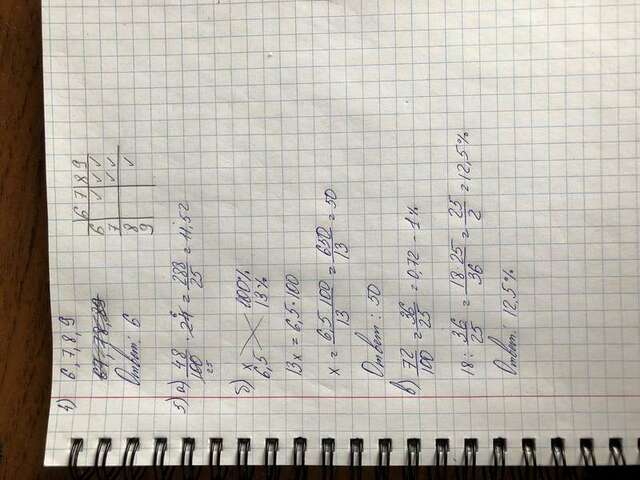 4) 6, 7, 8, 9
67, 78, 89
6 7 8 9
6 ✓ ✓ ✓
7 ✓ ✓
8 ✓
9
Ответ: 6
5) а) 48/100 · 24 = 288/25 = 11,52
25 6
б) x 100%
6,5 13%
13x = 6,5·100
x = 6,5·100/13 = 650/13 = 50
Ответ: 50
в) 72/100 = 36/25 = 0,72 - 1%
18 : 36/25 = 18·25/36 = 25/2 = 12,5%
Ответ: 12,5%